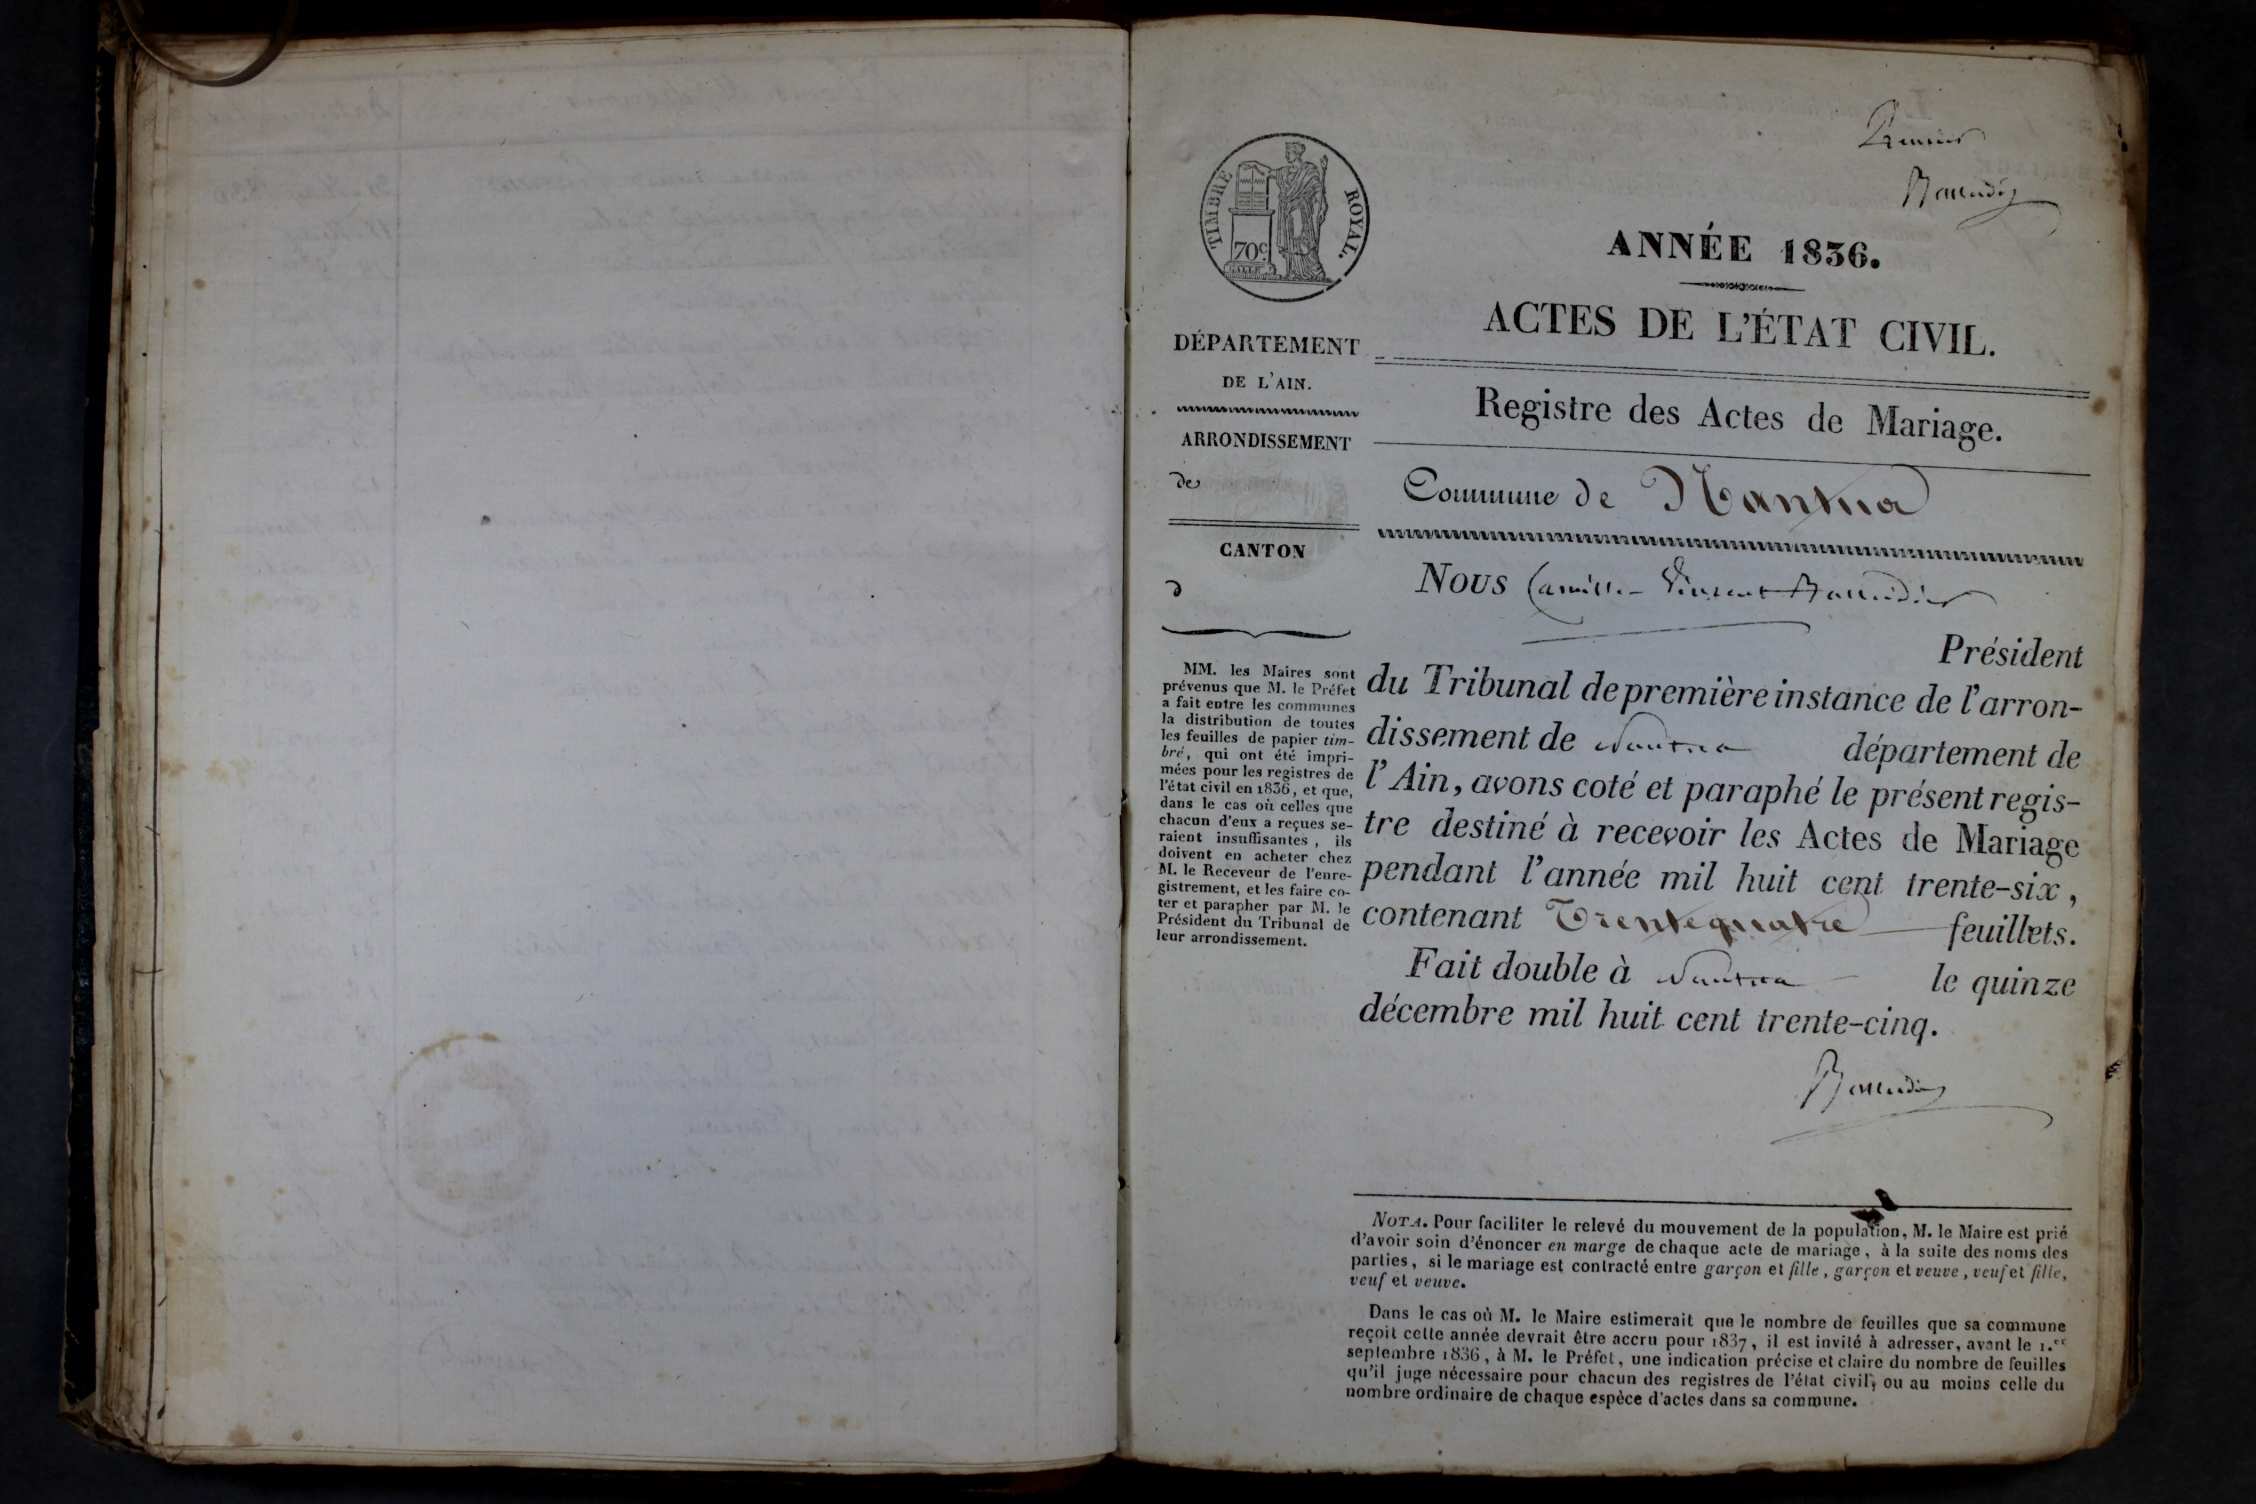 Premier
TIMBRE ROYAL.
70c
ANNÉE 1836.
ACTES DE L'ÉTAT CIVIL.
DÉPARTEMENT
DE L'AIN.
ARRONDISSEMENT
de
CANTON
d
MM. les Maires sont
prévenus que M. le Préfet
a fait entre les communes
la distribution de toutes
les feuilles de papier tim-
bré, qui ont été impri-
mées pour les registres de
l'état civil en 1836, et que,
dans le cas où celles que
chacun d'eux a reçues se-
raient insuffisantes, ils
doivent en acheter chez
M. le Receveur de l'enre-
gistrement, et les faire co-
ter et parapher par M. le
Président du Tribunal de
leur arrondissement.
Registre des Actes de Mariage.
Commune de Nantua
Nous Camille Vincent
Président
du Tribunal de première instance de l'arron-
dissement de Nantua département de
l'Ain, avons coté et paraphé le présent regis-
tre destiné à recevoir les Actes de Mariage
pendant l'année mil huit cent trente-six,
contenant Trentequatre feuillets.
Fait double à Nantua le quinze
décembre mil huit cent trente-cinq.
NOTA. Pour faciliter le relevé du mouvement de la population, M. le Maire est prié
d'avoir soin d'énoncer en marge de chaque acte de mariage, à la suite des noms des
parties, si le mariage est contracté entre garçon et fille, garçon et veuve, veuf et fille,
veuf et veuve.
Dans le cas où M. le Maire estimerait que le nombre de feuilles que sa commune
reçoit cette année devrait être accru pour 1837, il est invité à adresser, avant le 1.er
septembre 1836, à M. le Préfet, une indication précise et claire du nombre de feuilles
qu'il juge nécessaire pour chacun des registres de l'état civil, ou au moins celle du
nombre ordinaire de chaque espèce d'actes dans sa commune.